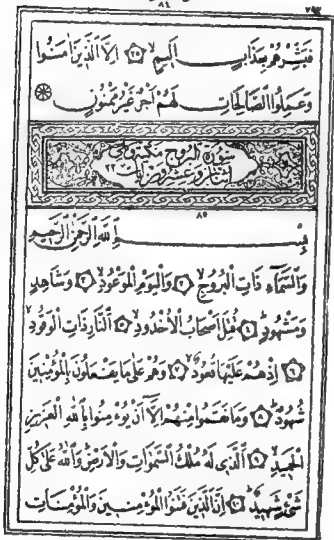 ٨٤
فَبَشِّرْهُمْ بِعَذَابٍ اَلِيمٍۙ ٢٥ اِلَّا الَّذِينَ اٰمَنُوا
وَعَمِلُوا الصَّالِحَاتِ لَهُمْ اَجْرٌ غَيْرُ مَمْنُونٍ
سورة البروج مكية وهي
اثنتان وعشرون آيات ٢٢
٨٥
بِسْمِ اللّٰهِ الرَّحْمٰنِ الرَّحِيمِ
وَالسَّمَآءِ ذَاتِ الْبُرُوجِۙ ٢ وَالْيَوْمِ الْمَوْعُودِۙ ٣ وَشَاهِدٍ
وَمَشْهُودٍۜ ٤ قُتِلَ اَصْحَابُ الْاُخْدُودِۙ ٥ اَلنَّارِ ذَاتِ الْوَقُودِۙ
٦ اِذْ هُمْ عَلَيْهَا قُعُودٌۙ ٧ وَهُمْ عَلٰى مَا يَفْعَلُونَ بِالْمُؤْمِنِينَ
شُهُودٌۜ ٨ وَمَا نَقَمُوا مِنْهُمْ اِلَّٓا اَنْ يُؤْمِنُوا بِاللّٰهِ الْعَزِيزِ
الْحَمِيدِۙ ٩ اَلَّذِى لَهُ مُلْكُ السَّمٰوَاتِ وَالْاَرْضِۜ وَاللّٰهُ عَلٰى كُلِّ
شَىْءٍ شَهِيدٌۜ ١٠ اِنَّ الَّذِينَ فَتَنُوا الْمُؤْمِنِينَ وَالْمُؤْمِنَاتِ